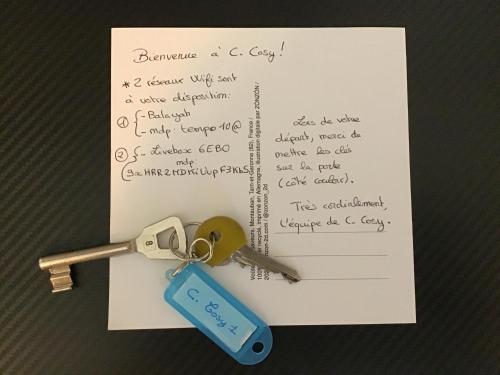 Bienvenue à C. Cosy !
* 2 réseaux Wifi sont
à votre disposition:
1 { - Balayab
- mdp: tempo 10@
2 { - Livebox 6EB0
mdp:
Lors de votre
départ, merci de
mettre les clés
sur la porte
(côté couloir).
Très cordialement,
L'équipe de C. Cosy.
Montauban, Tarn-et-Garonne (82), France /
recyclé, imprimé en Allemagne, illustration digitale par ZONZON /
8
C. Cosy 1